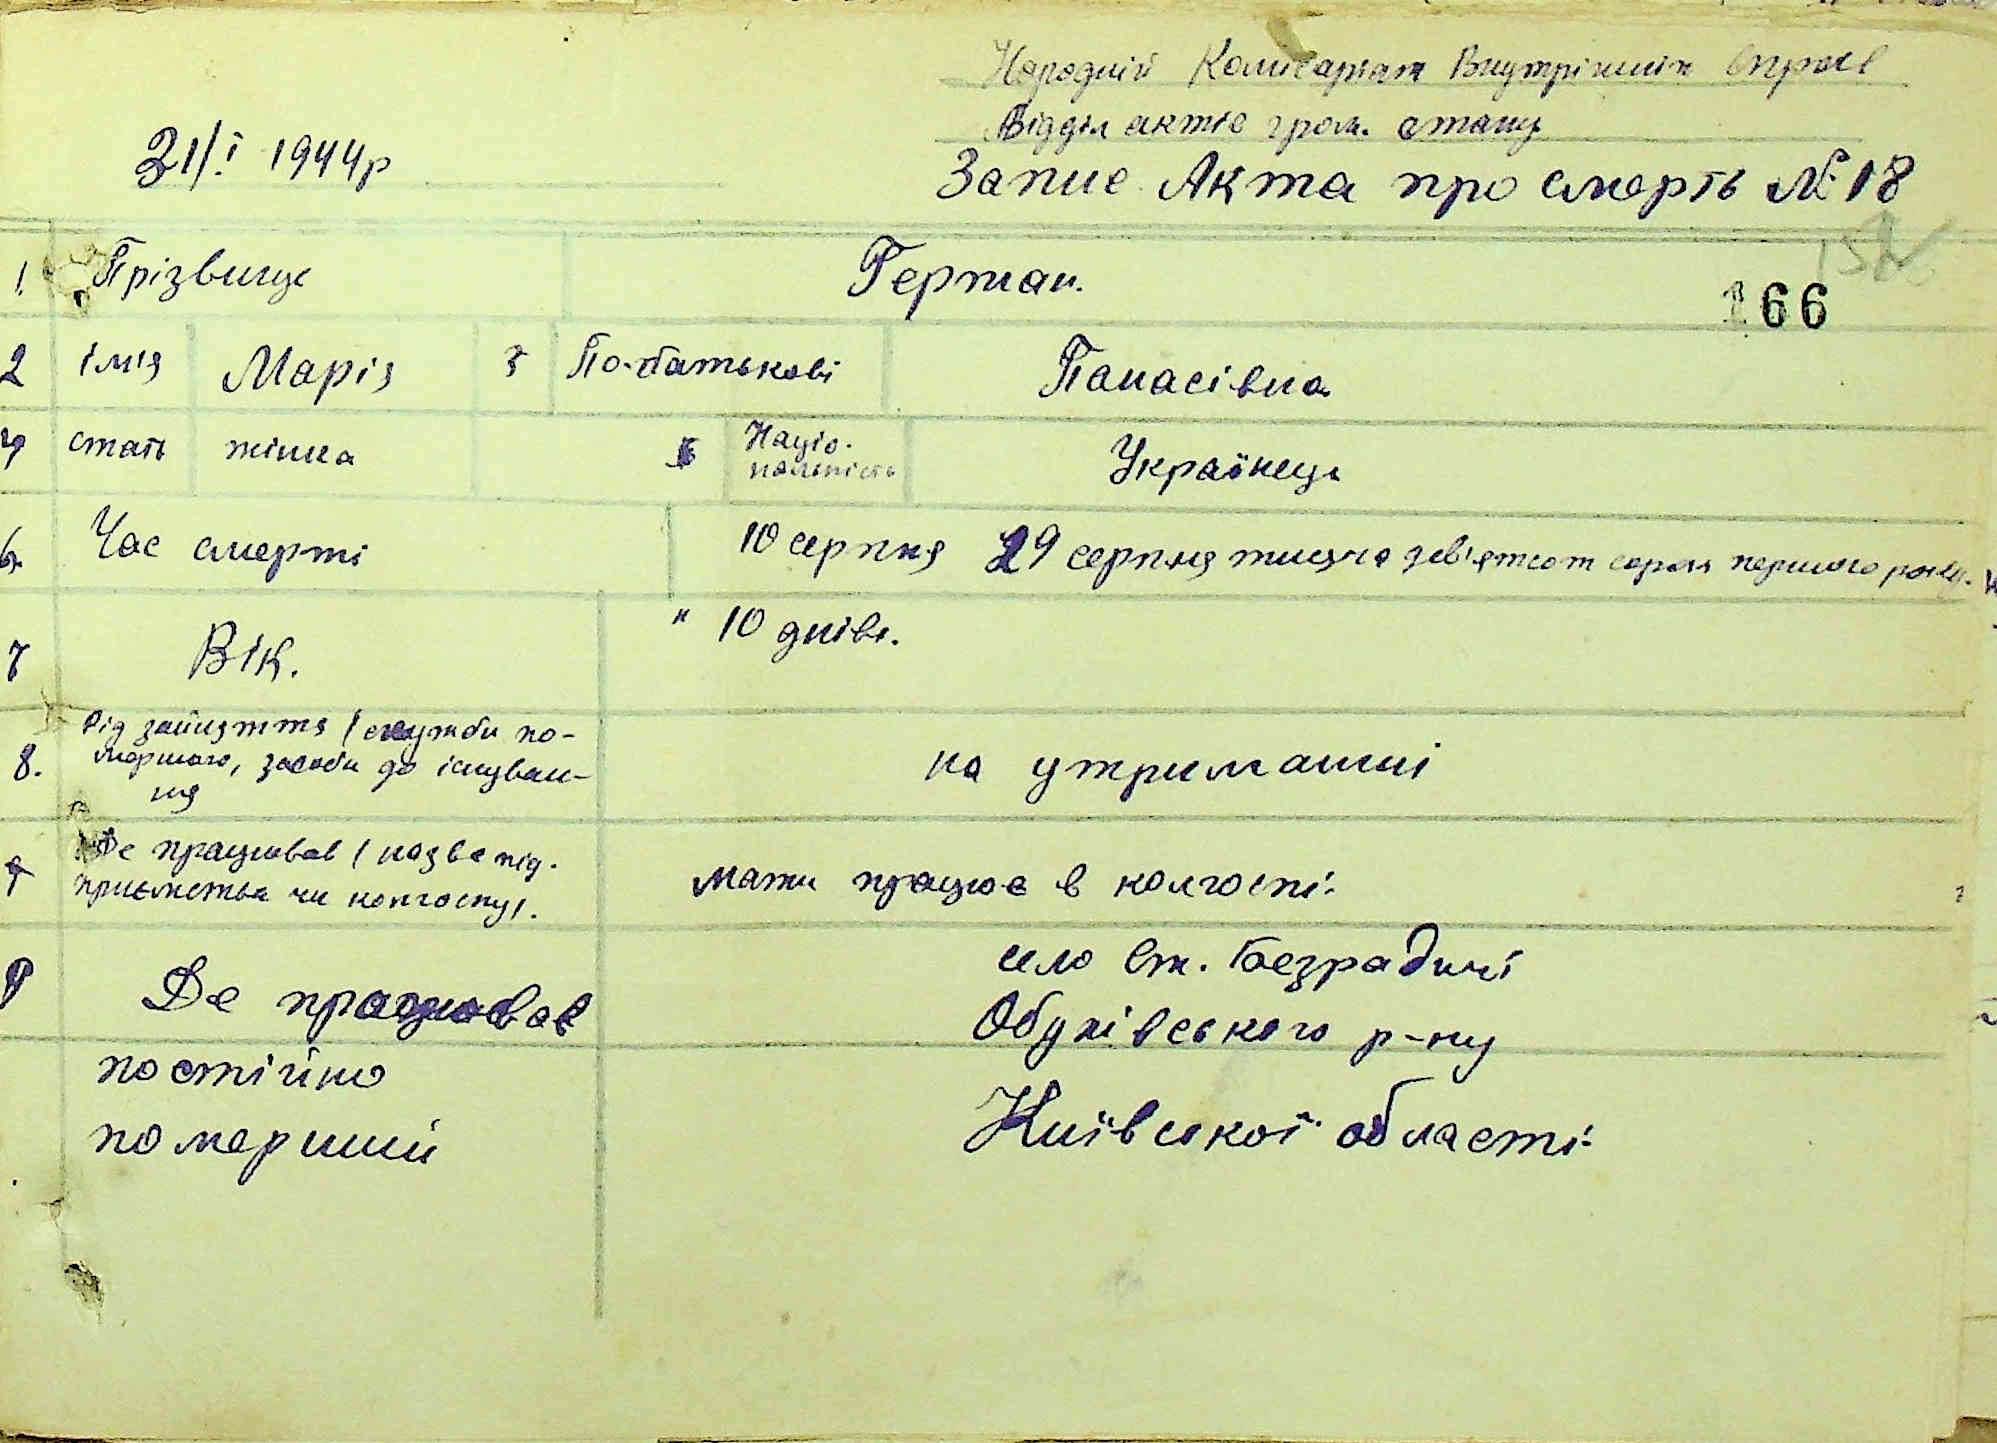 Народній Комісаріат Внутрішніх справ
Відділ актів гром. стану
21/І 1944р
Запис Акта про смерть № 18
152
1. Прізвище Герман.
166
2 імія Марія 3 По-батькові Панасівна
4 стать жінка 5 Націо-
нальність Українець
6. Час смерті 10 серпня 29 серпня тисяча девʼятсот сорок першого року.
7 Вік. " 10 днів.
8. Рід зайняття (служби по-
мершого, засоби до існуван-
ня на утриманні
9 Де працював (назва під-
приємства чи колгоспу). мати працює в колгоспі.
9 Де працював
постійно
померший
село Ст. Безрадичі
Обухівського р-ну
Київської області